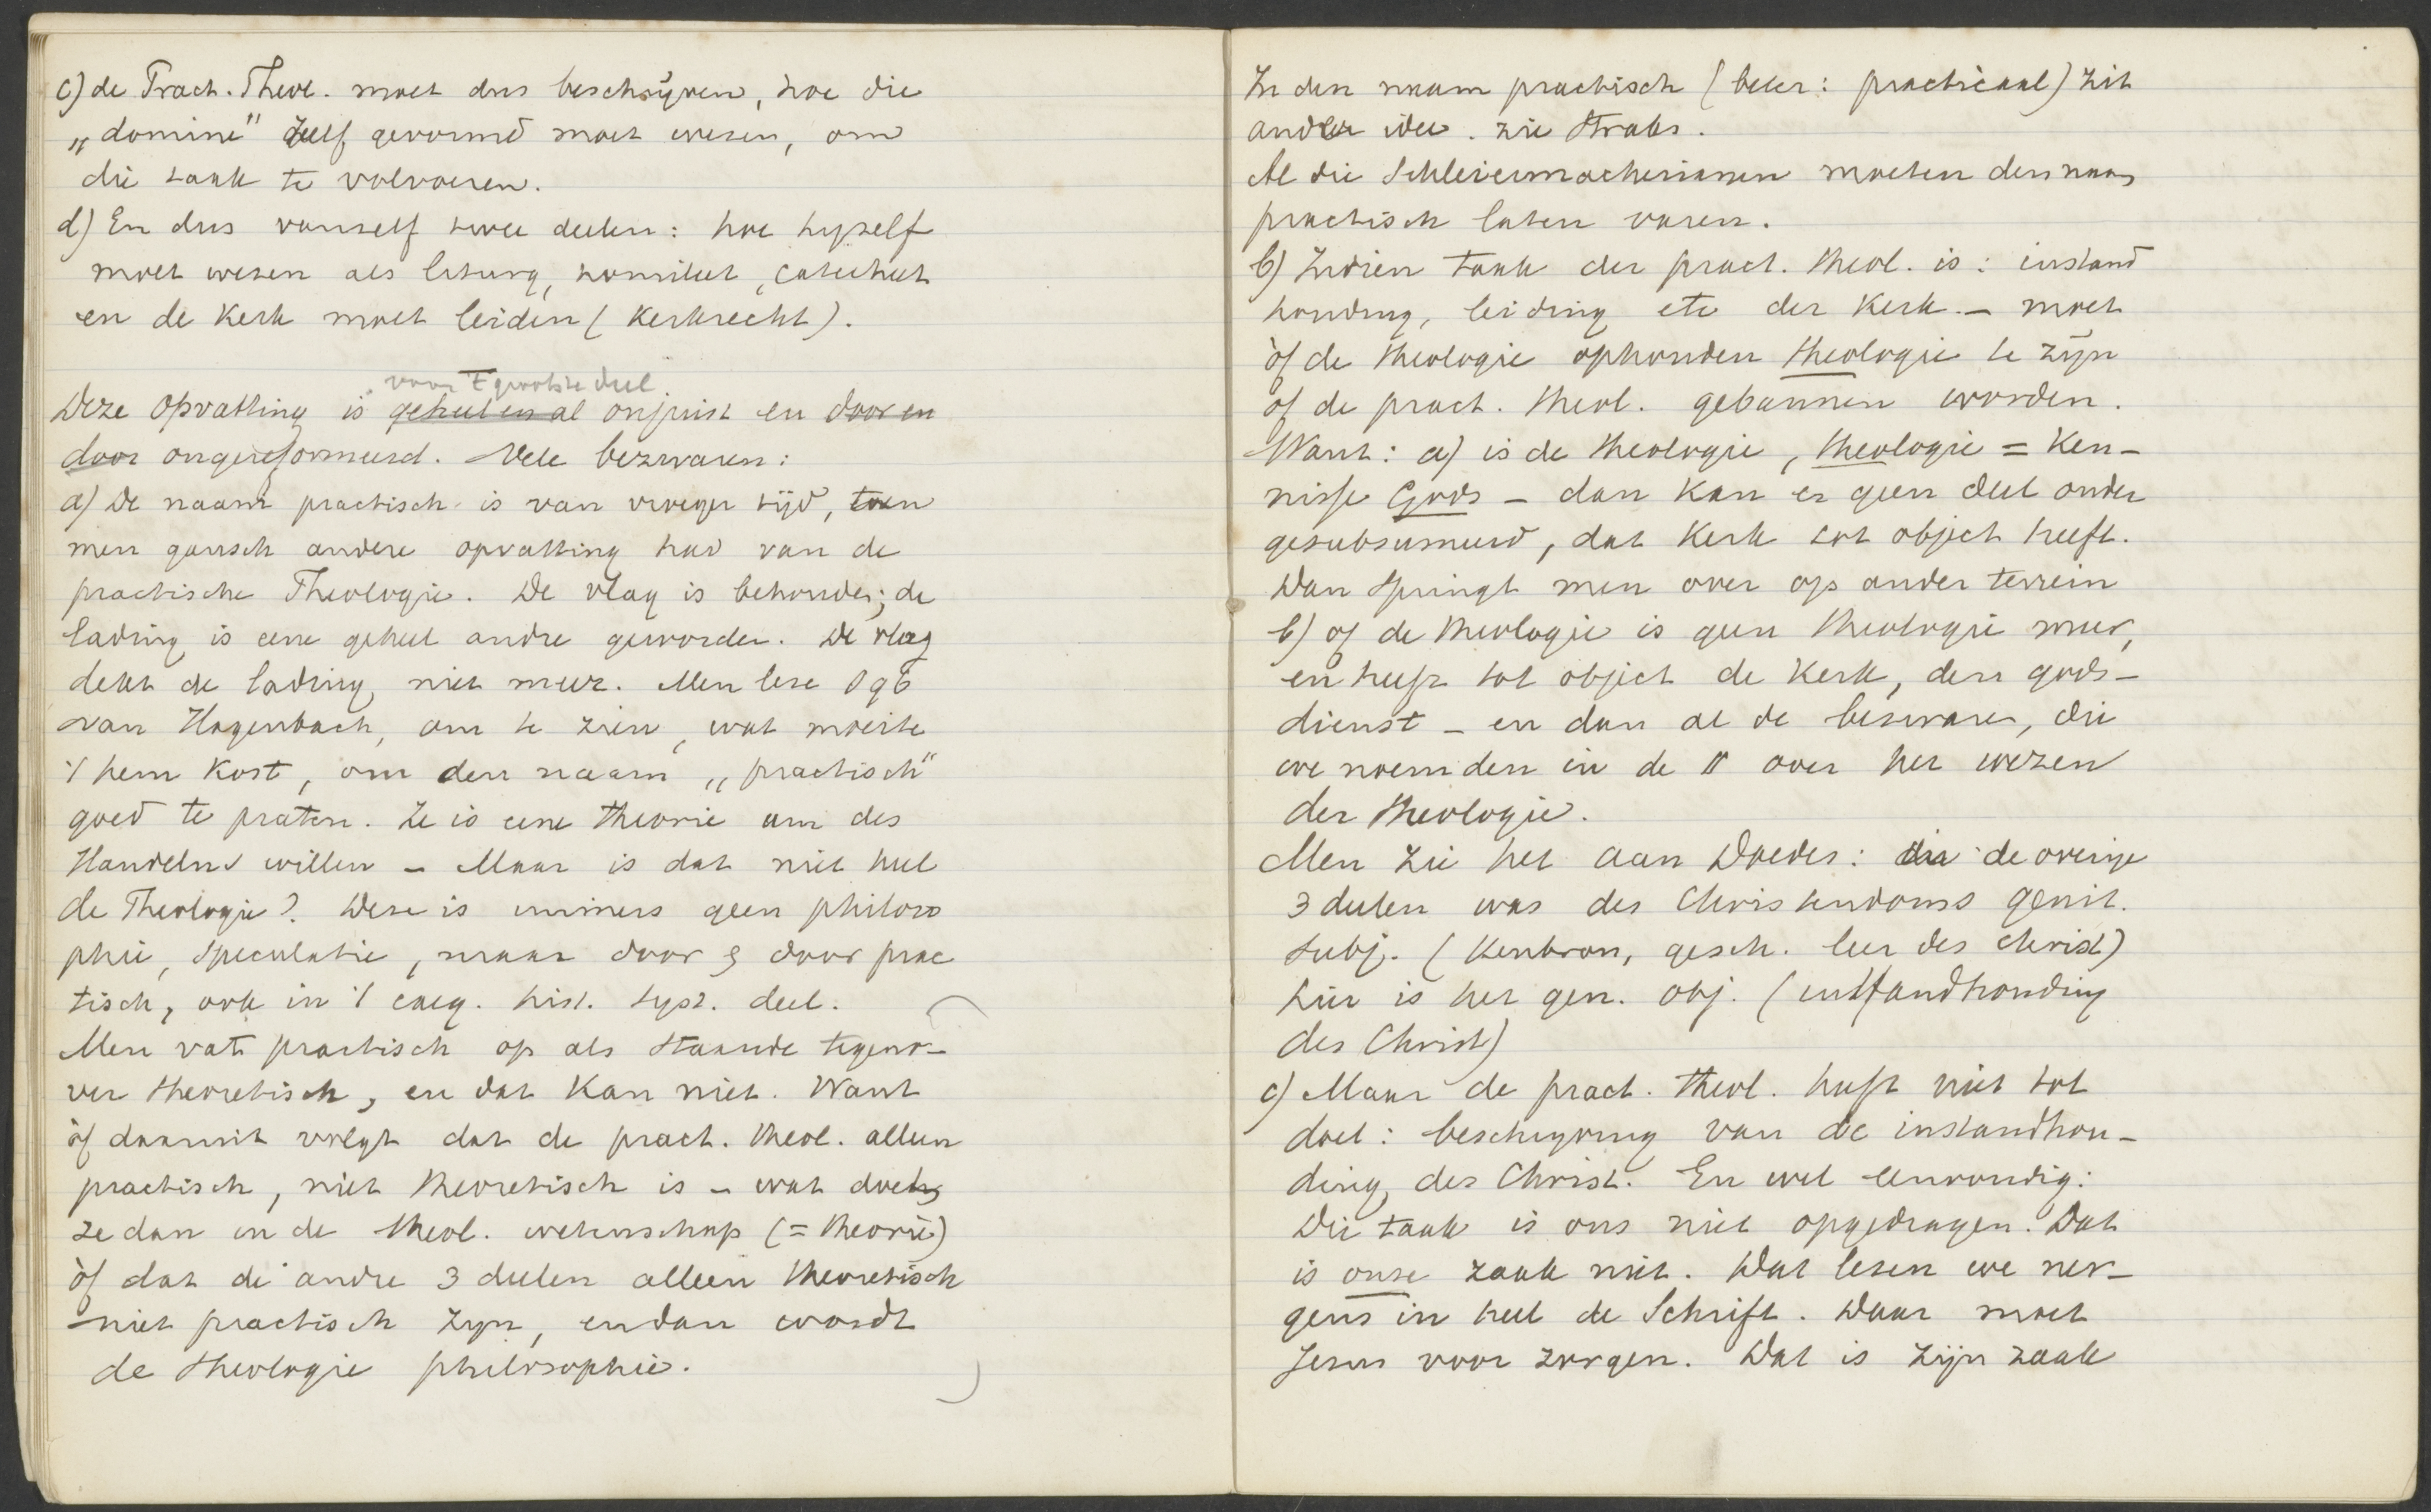 c) de Pract. Theol. moet dus beschrijven, hoe die
„domine" zelf gevormd moet wezen, om
die taak te volvoeren.
d) En dus vanzelf twee deelen: hoe hyzelf
moet wezen als liturg, homileet, catecheet
en de Kerk moet leiden (Kerkrecht).
voor 't grootste deel
Deze opvatting is geheel en al onjuist en door en
door ongereformeerd. Vele bezwaren:
a) De naam practisch is van vroeger tijd, toen
men gansch andere opvatting had van de
practische Theologie. De vlag is behouden; de
lading is eene geheel andre geworden. De vlag
dekt de lading niet meer. Men leze § 96
van Hagenbach, om te zien, wat moeite
't hem kost, om den naam „practisch"
goed te praten. Ze is eene theorie um des
Handelns willen – Maar is dat niet heel
de Theologie? Deze is immers geen philoso
phie, speculatie, maar door & door prac
tisch, ook in 't exeg. hist. syst. deel.
Men vat practisch op als staande tegeno-
ver theoretisch, en dat kan niet. Want
òf daaruit volgt dat de pract. theol. alleen
practisch, niet theoretisch is – wat doet
ze dan in de theol. wetenschap (= theorie)
òf dat de andre 3 deelen alleen theoretisch
niet practisch zyn, en dan wordt
de theologie philosophie.
In den naam practisch (beter: practicaal) zit
ander idee. zie straks.
Al die Schleiermacherianen moeten den naam
practisch laten varen.
b) Indien taak der pract. theol. is: instand
houding, leiding etc der Kerk. – moet
òf de theologie ophouden theologie te zijn
òf de pract. theol. gebannen worden.
Want: a) is de theologie, theologie = Ken-
nisse Gods – dan kan er geen deel onder
gesubsumeerd, dat Kerk tot object heeft.
Dan springt men over op ander terrein
b) of de theologie is geen theologie meer,
en heeft tot object de Kerk, den gods-
dienst – en dan al de bezwaren, die
we noemden in de § over het wezen
der theologie.
Men zie het aan Doedes: in de overige
3 deelen was des Christendoms genit.
subj. (Kenbron, gesch. leer des Christ)
hier is het gen. obj. (instandhouding
des Christ)
c) Maar de pract. theol. heeft niet tot
doel: beschryving van de instandhou-
ding des Christ. En wel eenvoudig:
Die taak is ons niet opgedragen. Dat
is onze zaak niet. Dat lezen we ner-
gens in heel de Schrift. Daar moet
Jezus voor zorgen. Dat is zijn zaak